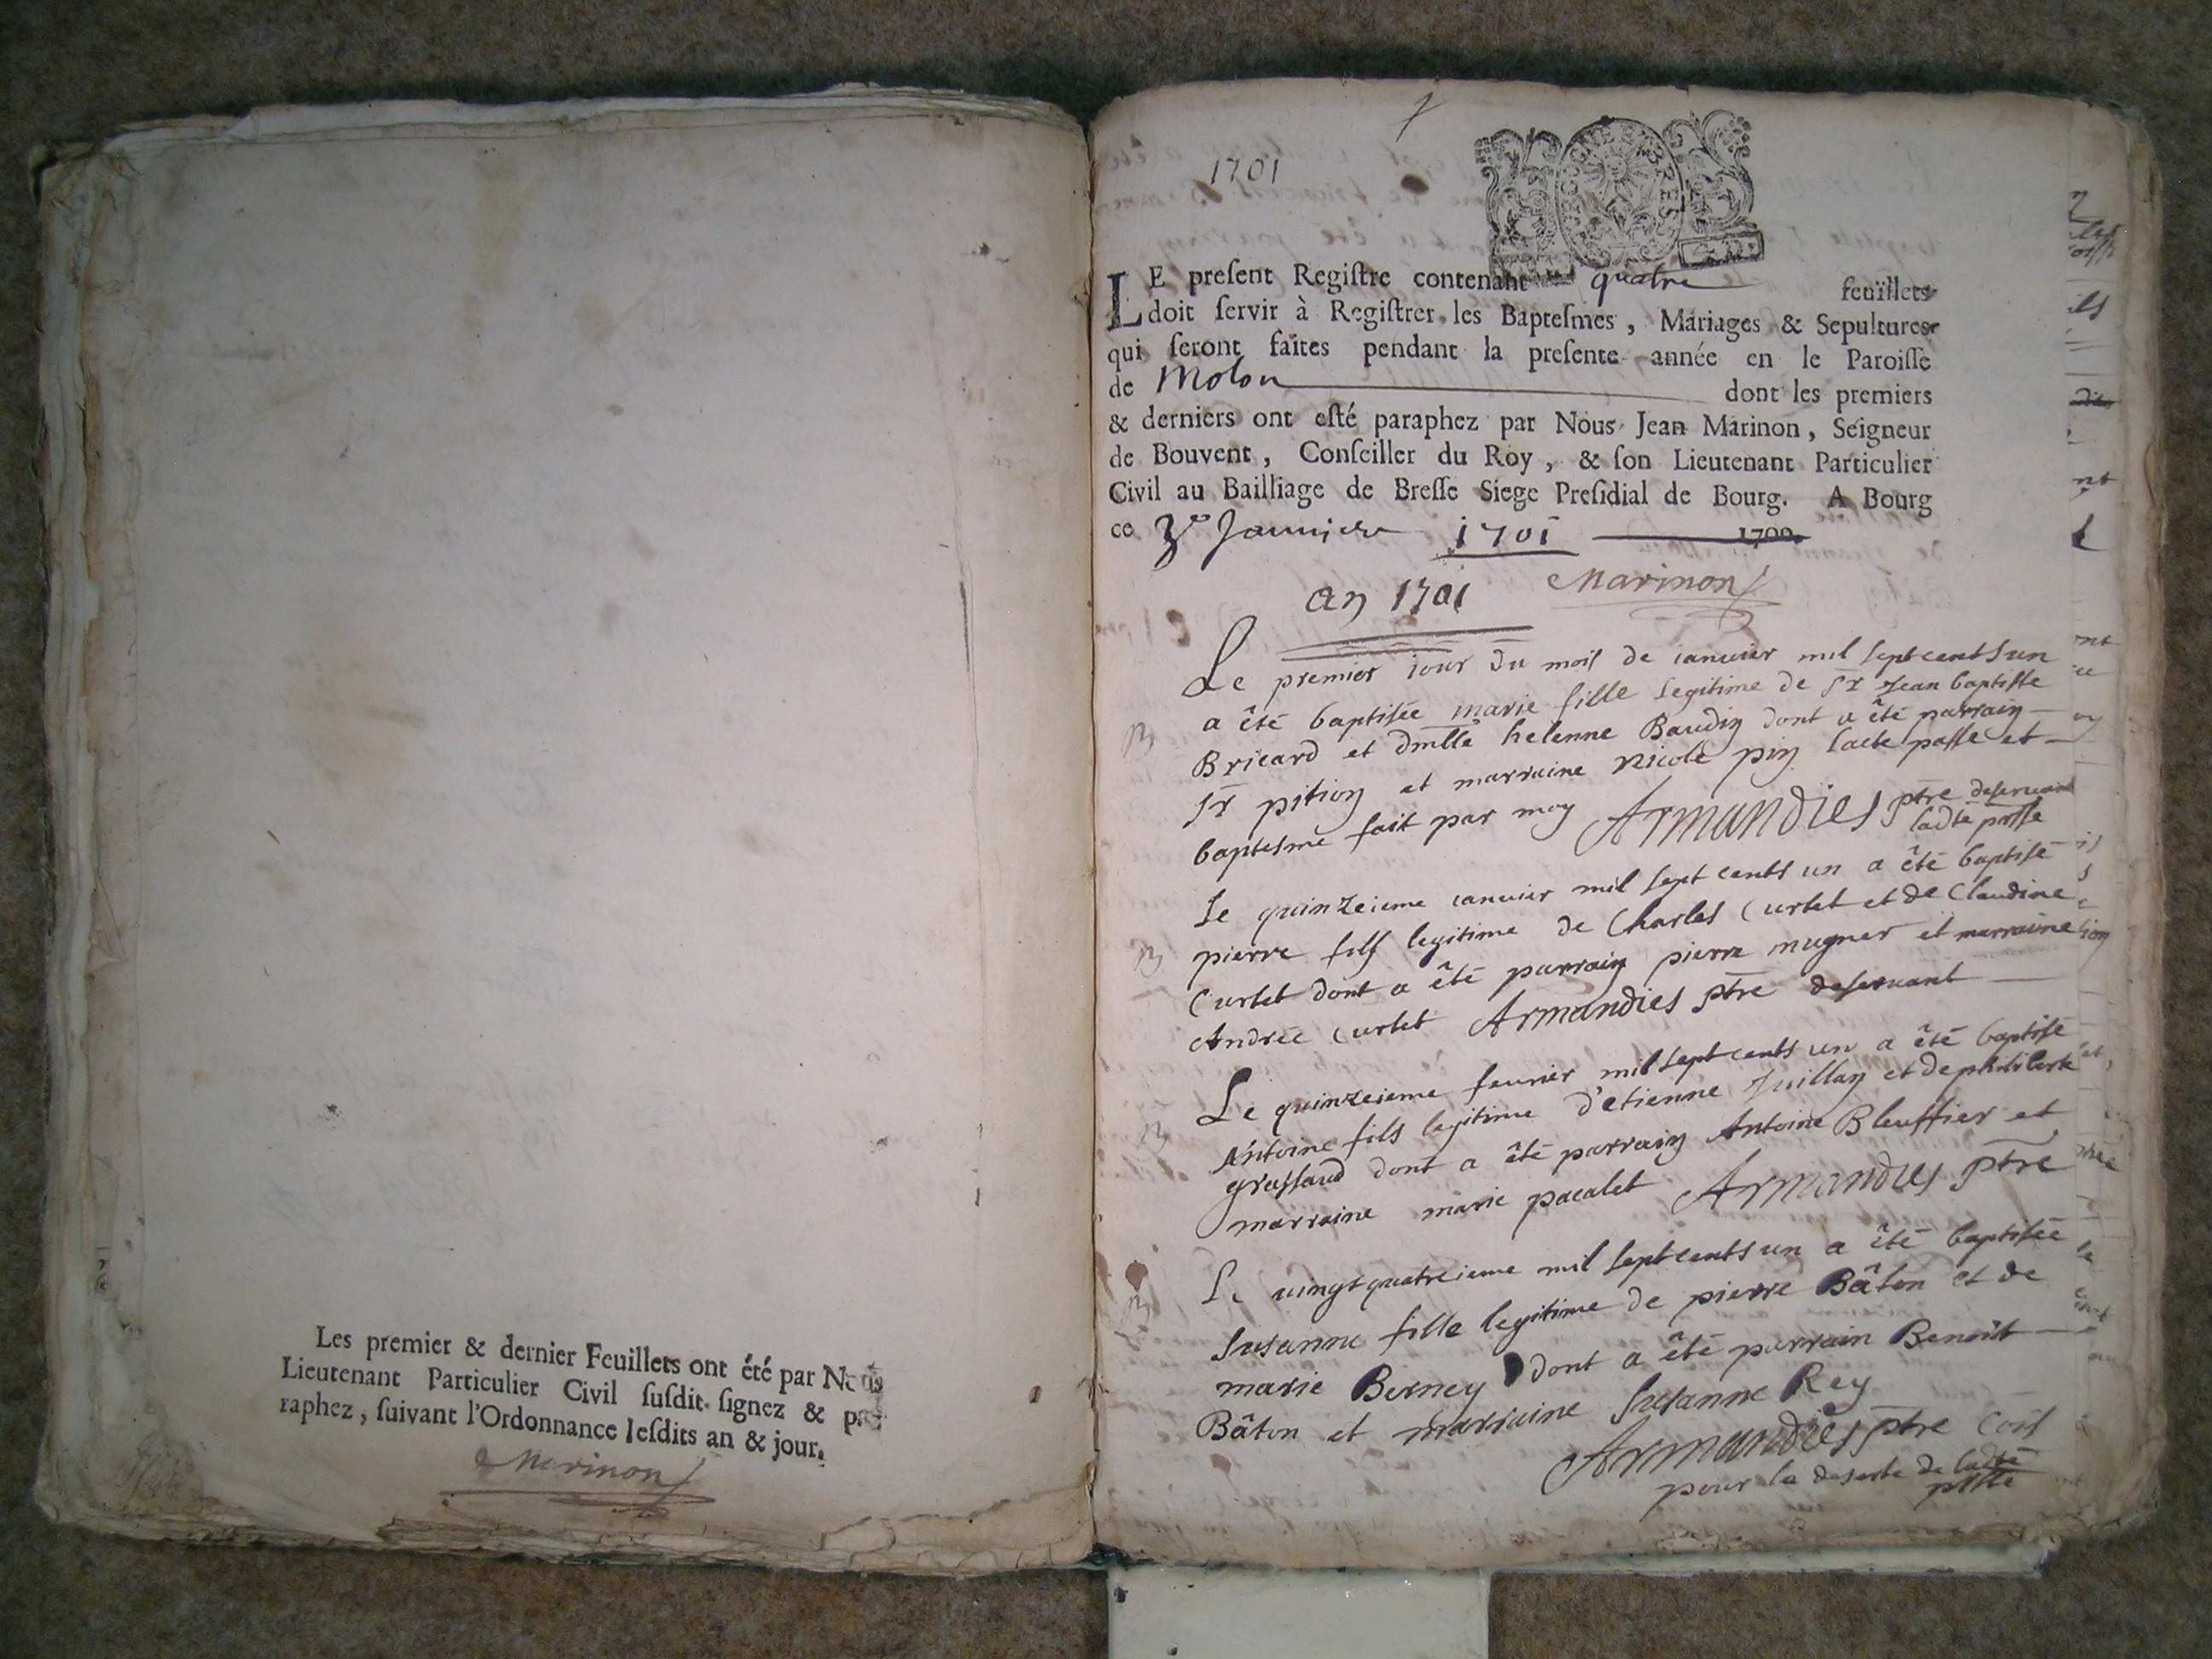 Les premier & dernier Feuillets ont été par Nous
Lieutenant Particulier Civil ſuſdit ſignez & pa-
raphez, ſuivant l'Ordonnance leſdits an & jour.
Marinon
1701
LE preſent Regiſtre contenant quatre feüillets
doit ſervir à Regiſtrer les Bapteſmes, Mariages & Sepultures
qui ſeront faites pendant la preſente année en le Paroiſſe
de Molon dont les premiers
& derniers ont eſté paraphez par Nous Jean Marinon, Seigneur
de Bouvent, Conſeiller du Roy, & ſon Lieutenant Particulier
Civil au Bailliage de Breſſe Siege Preſidial de Bourg. A Bourg
ce 3e Januier 1701 1700.
Marinon
an 1701
Le premier iour du mois de ianuier mil sept cents un
a êté baptisée marie fille legitime de Sr Jean baptiste
Bricard et dmlle helenne Baudin dont a êté parrain
Sr pition et marraine Nicole pin ladte passe et
baptesme fait par moy Armandies ptre deseruant
ladte passe
Le quinzeieme ianuier mil sept cents un a êté baptisé
pierre fils legitime de Charles Curtet et de Claudine
Curtet dont a êté parrain pierre mugner et marraine
Andrée Curtet Armandies ptre deseruant
Le quinzeieme feurier mil sept cents un a êté baptisé
Antoine fils legitime d'etienne Juillan et de philiberte
grassaud dont a êté parrain Antoine Bleuffier et
marraine marie pacalet Armandies ptre
Le uingt quatreieme mil sept cents un a êté baptisée
Susanne fille legitime de pierre Bâton et de
marie Berney dont a êté parrain Benoit
Bâton et marraine Susanne Rey
Armandies ptre cõis
pour la deserte de ladte
psse